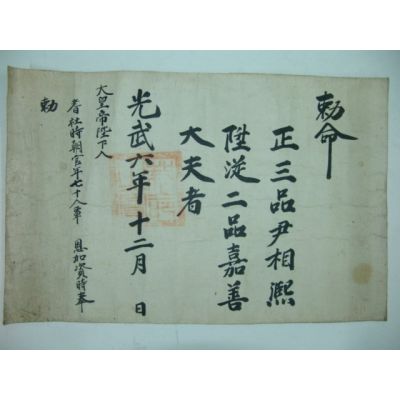 勅命
正三品尹相熙
陞從二品嘉善
大夫者
光武六年十二月 日
大皇帝陛下入
耆社時朝官年七十 恩加資時奉
勅